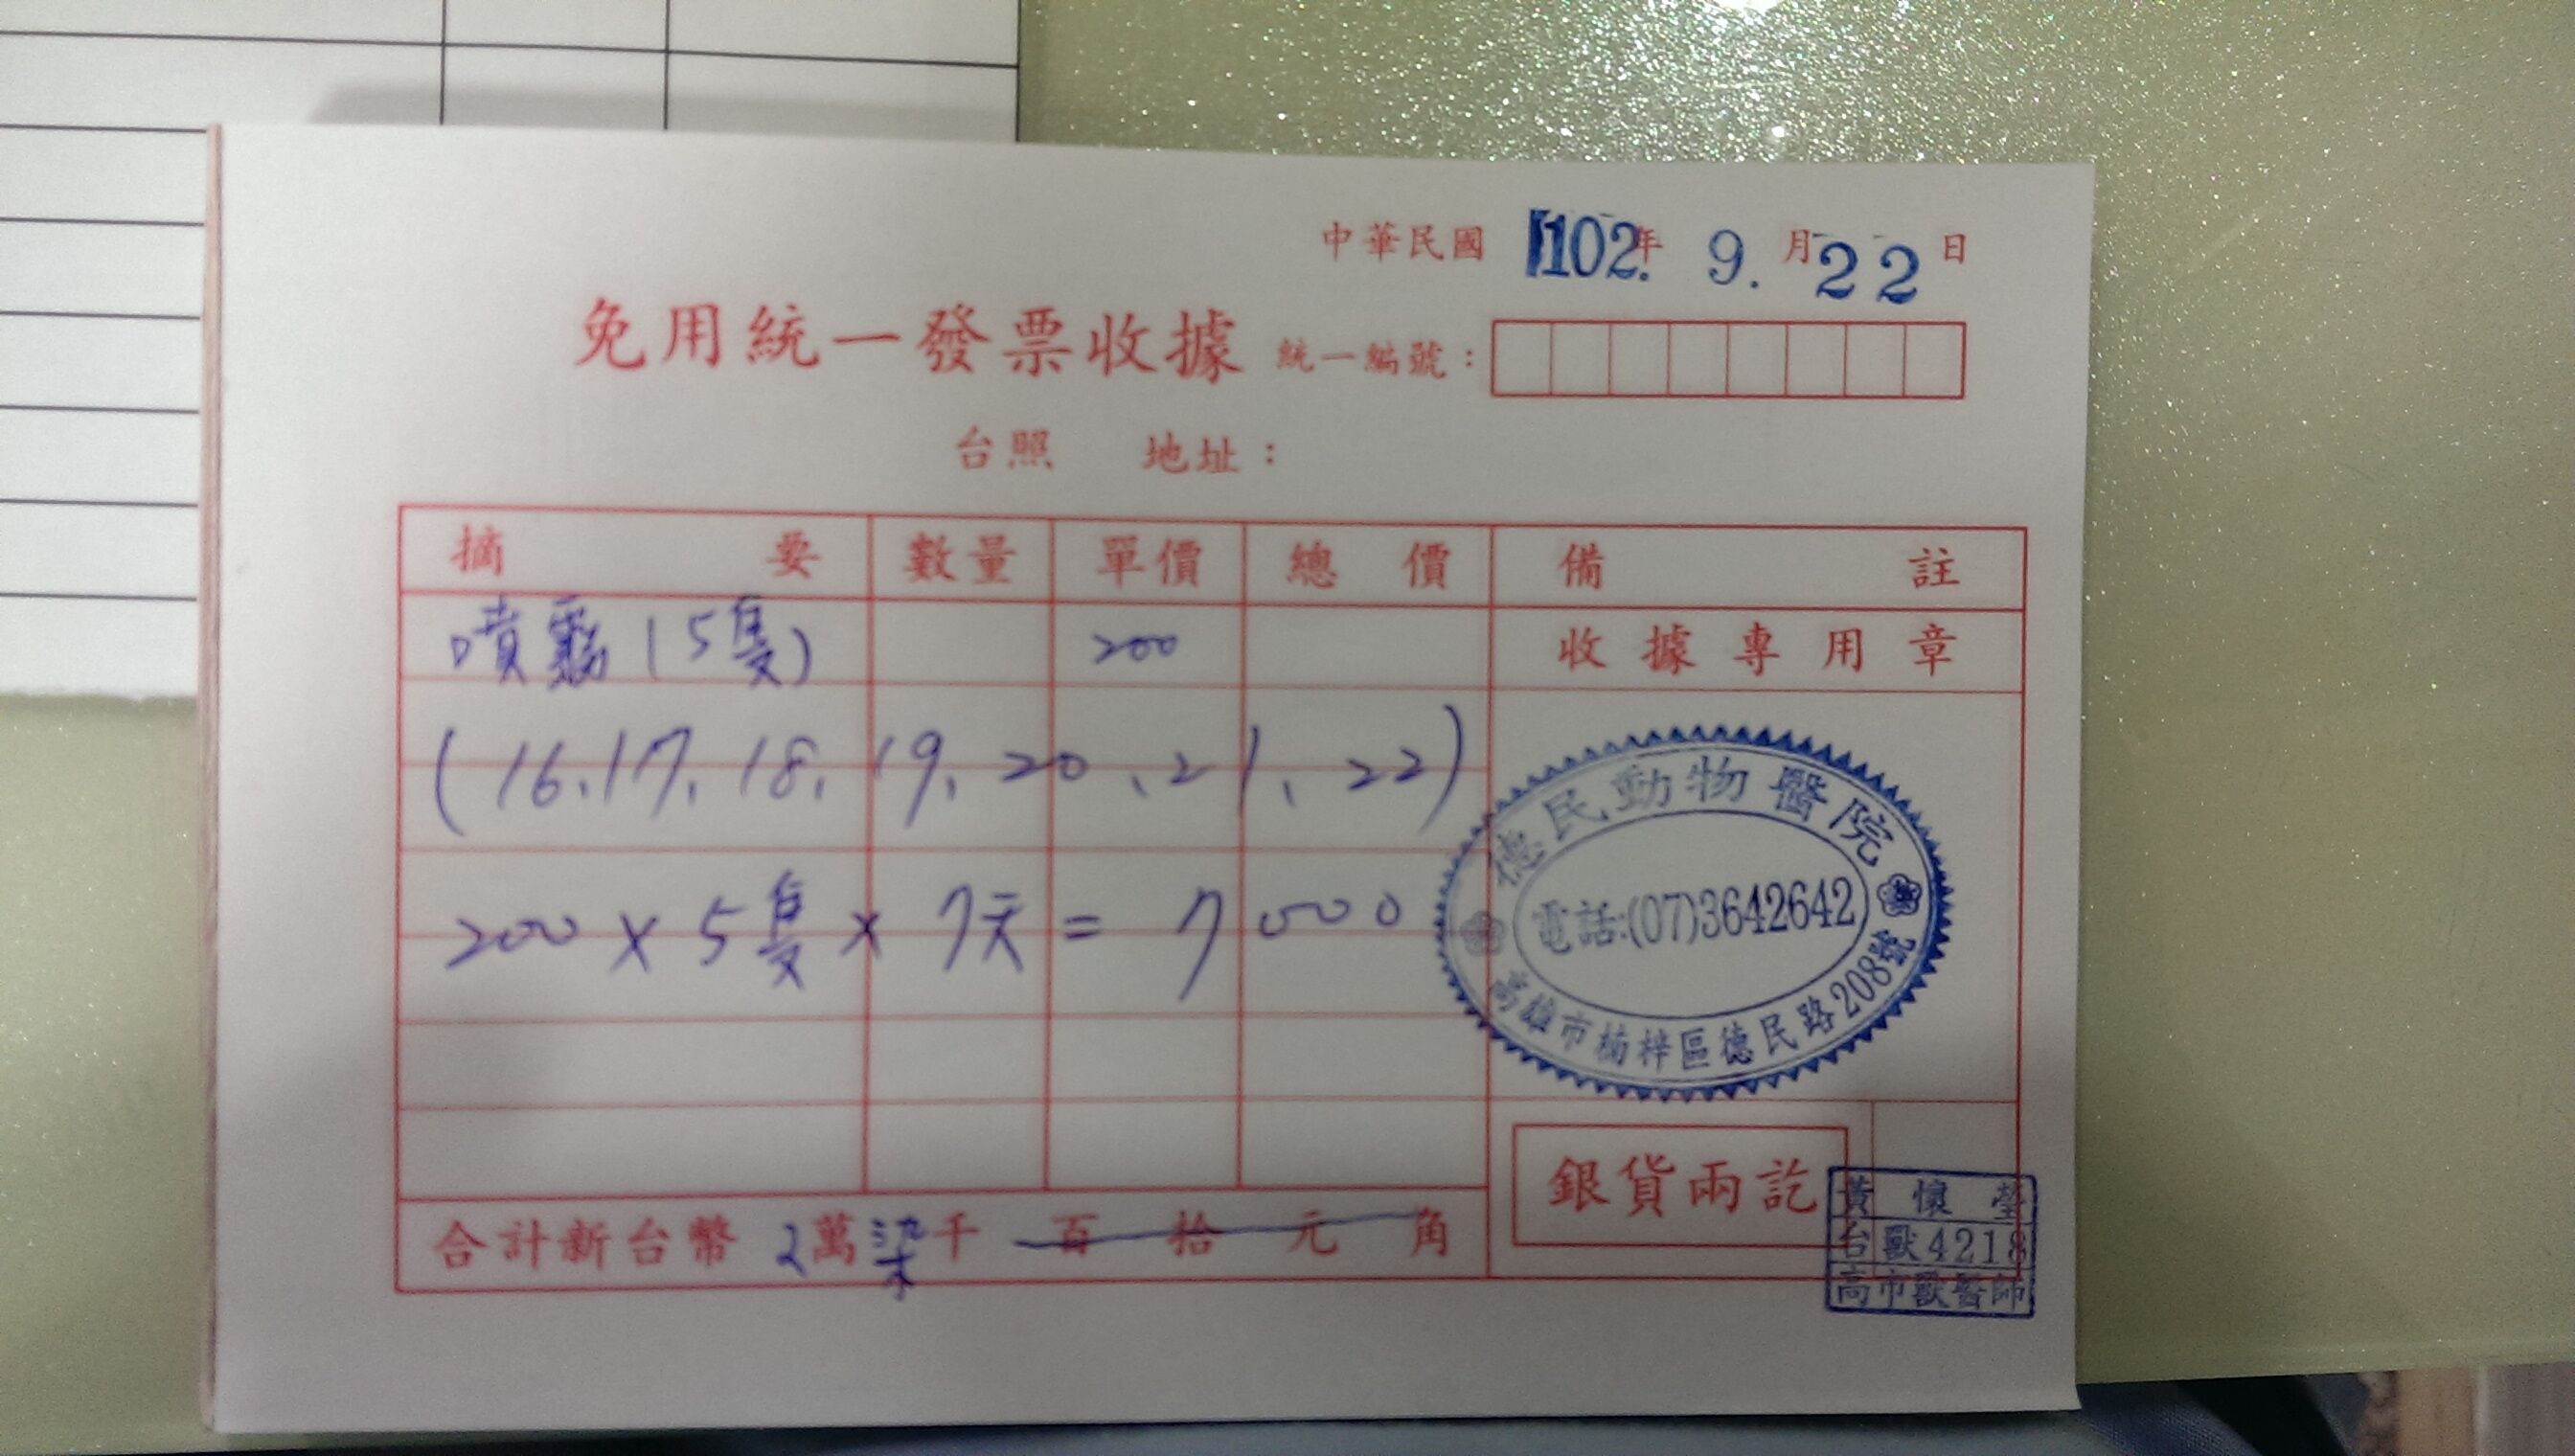 中華民國 102年 9.月22日
免用統一發票收據 統一編號：
台照 地址：
摘要 數量 單價 總價 備註
噴霧(5隻) 200 收據專用章
(16、17、18、19、20、21、22)
200 x 5隻 x 7天 = 7000
德民動物醫院
電話:(07)3642642
高雄市楠梓區德民路208號
銀貨兩訖
合計新台幣 萬柒千 百 拾 元 角
黃懷瑩
台獸4218
高市獸醫師